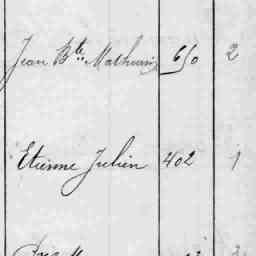 Jean Bte. Mathurin 650 2
Etienne Julien 402 1